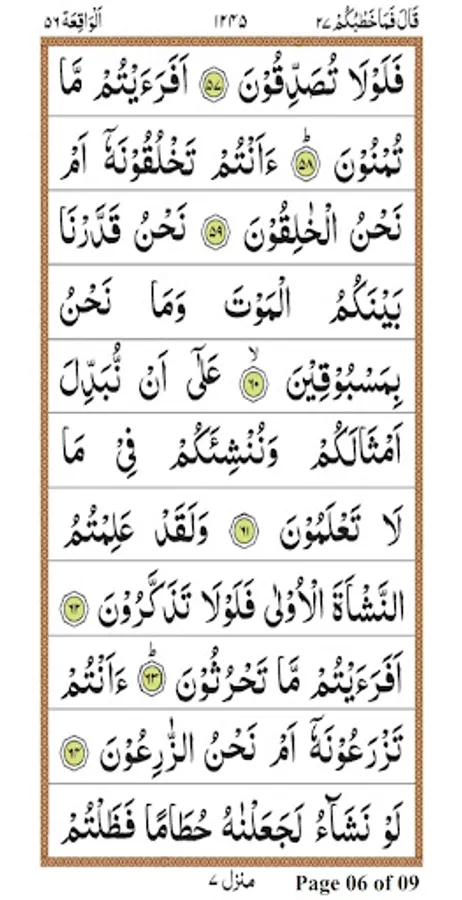 قَالَ فَمَا خَطْبُكُمْ ٢٧ ١٢٤٥ اَلْوَاقِعَة ٥٦
فَلَوْلَا تُصَدِّقُوْنَ ﴿٥٧﴾ اَفَرَءَيْتُمْ مَّا
تُمْنُوْنَ ؕ﴿٥٨﴾ ءَاَنْتُمْ تَخْلُقُوْنَهٗۤ اَمْ
نَحْنُ الْخٰلِقُوْنَ ﴿٥٩﴾ نَحْنُ قَدَّرْنَا
بَيْنَكُمُ الْمَوْتَ وَمَا نَحْنُ
بِمَسْبُوْقِيْنَ ۙ﴿٦٠﴾ عَلٰۤى اَنْ نُّبَدِّلَ
اَمْثَالَكُمْ وَنُنْشِئَكُمْ فِيْ مَا
لَا تَعْلَمُوْنَ ﴿٦١﴾ وَلَقَدْ عَلِمْتُمُ
النَّشْاَةَ الْاُوْلٰى فَلَوْلَا تَذَكَّرُوْنَ ﴿٦٢﴾
اَفَرَءَيْتُمْ مَّا تَحْرُثُوْنَ ؕ﴿٦٣﴾ ءَاَنْتُمْ
تَزْرَعُوْنَهٗۤ اَمْ نَحْنُ الزّٰرِعُوْنَ ﴿٦٤﴾
لَوْ نَشَآءُ لَجَعَلْنٰهُ حُطَامًا فَظَلْتُمْ
منزل ٧ Page 06 of 09